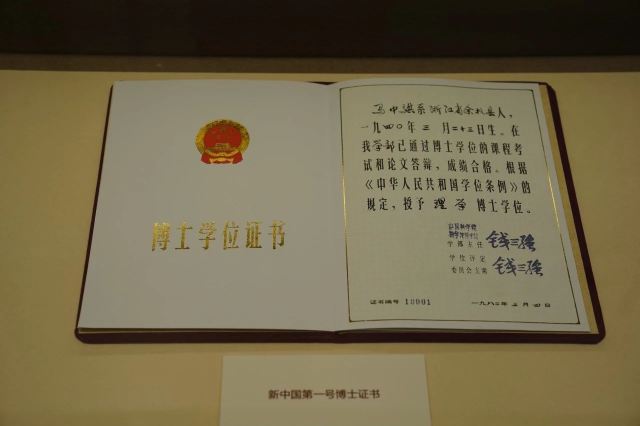 博士学位证书
马中骐系浙江省余杭县人，
一九四〇年三月二十三日生。在
我学部已通过博士学位的课程考
试和论文答辩，成绩合格。根据
《中华人民共和国学位条例》的
规定，授予理学博士学位。
学部主任 钱三强
学位评定
委员会主席 钱三强
证书编号 10001
新中国第一号博士证书